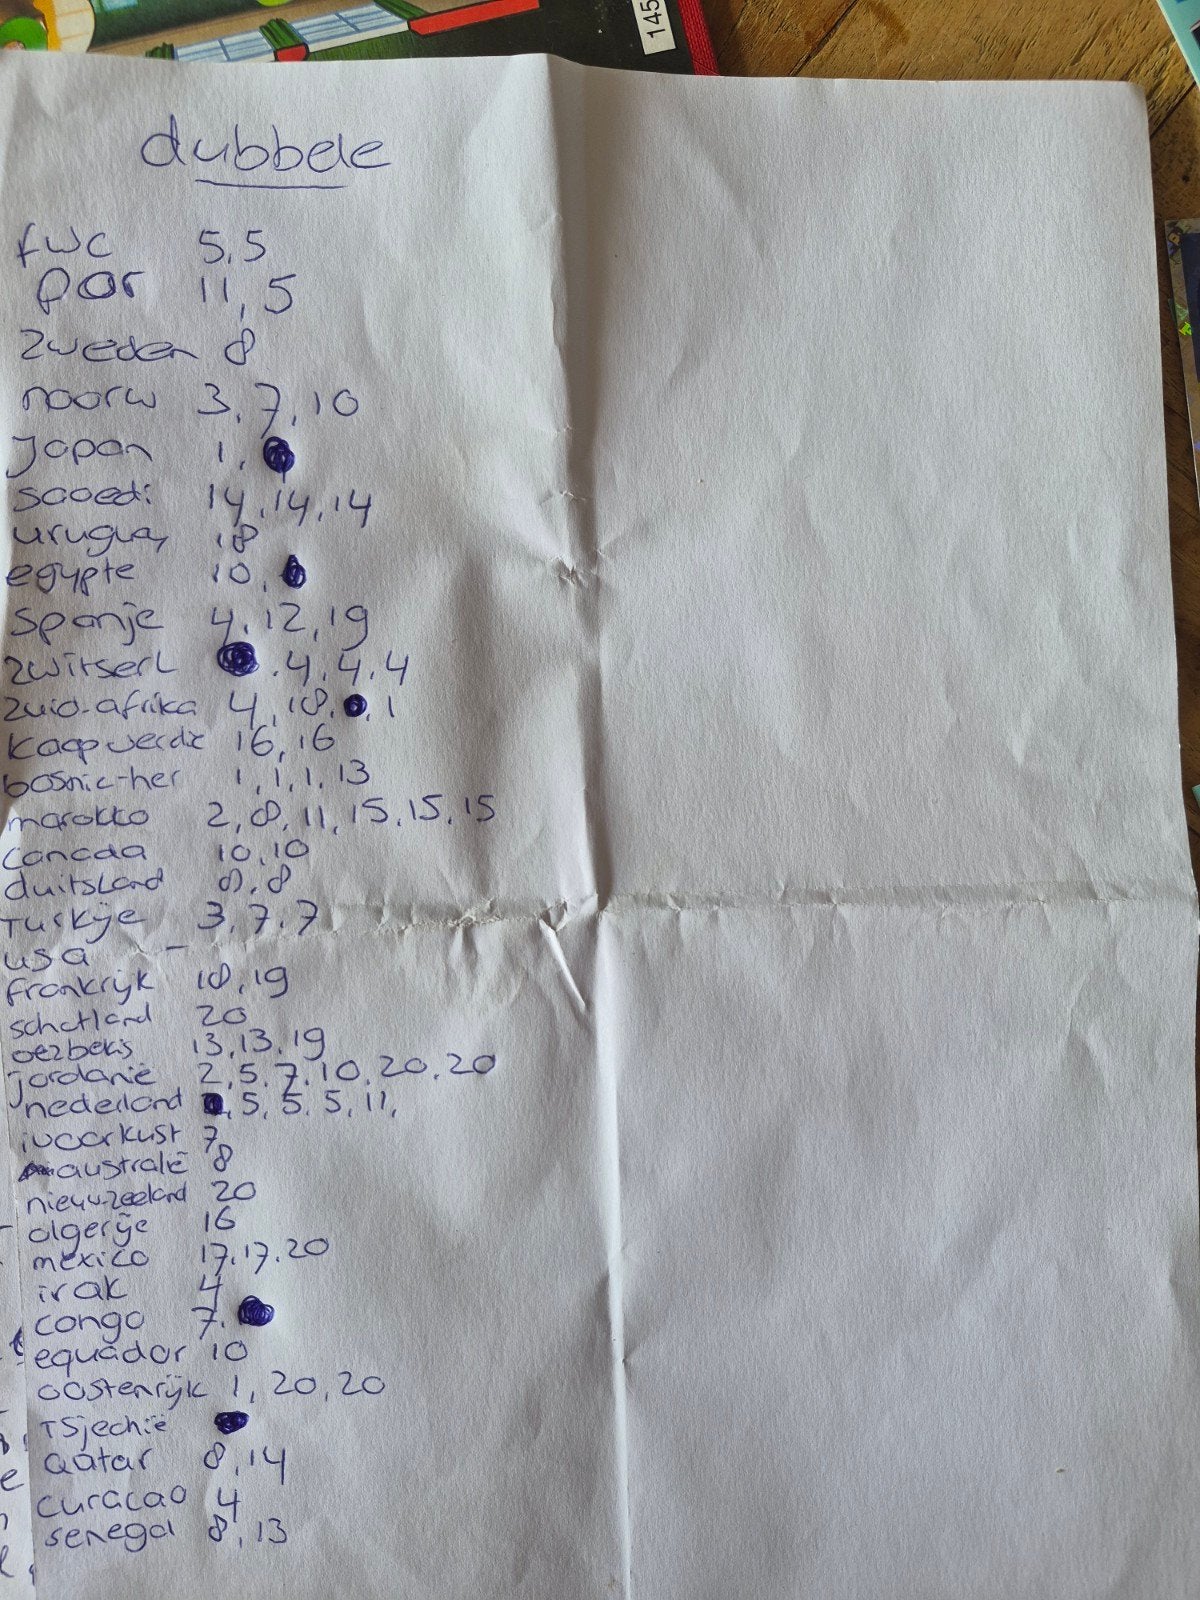 145
dubbele
fwc 5,5
por 11, 5
zweden 8
noorw 3, 7, 10
Japan 1,
saoedi 14, 14, 14
uruguay 18
egypte 10,
spanje 4, 12, 19
zwitserl . 4, 4, 4
zuid-afrika 4, 18, , 1
kaapverdie 16, 16
bosnie-her 1, 1, 1, 13
marokko 2, 8, 11, 15, 15, 15
canada 10, 10
duitsland 8, 8
Turkije 3, 7, 7
usa -
frankrijk 18, 19
schotland 20
oezbekis 13, 13, 19
jordanië 2, 5, 7, 10, 20, 20
nederland , 5, 5, 5, 11,
ivoorkust 7
australië 8
nieuw-zeeland 20
algerije 16
mexico 17, 17, 20
irak 4
congo 7,
equador 10
oostenrijk 1, 20, 20
Tsjechië
qatar 8, 14
curacao 4
senegal 8, 13